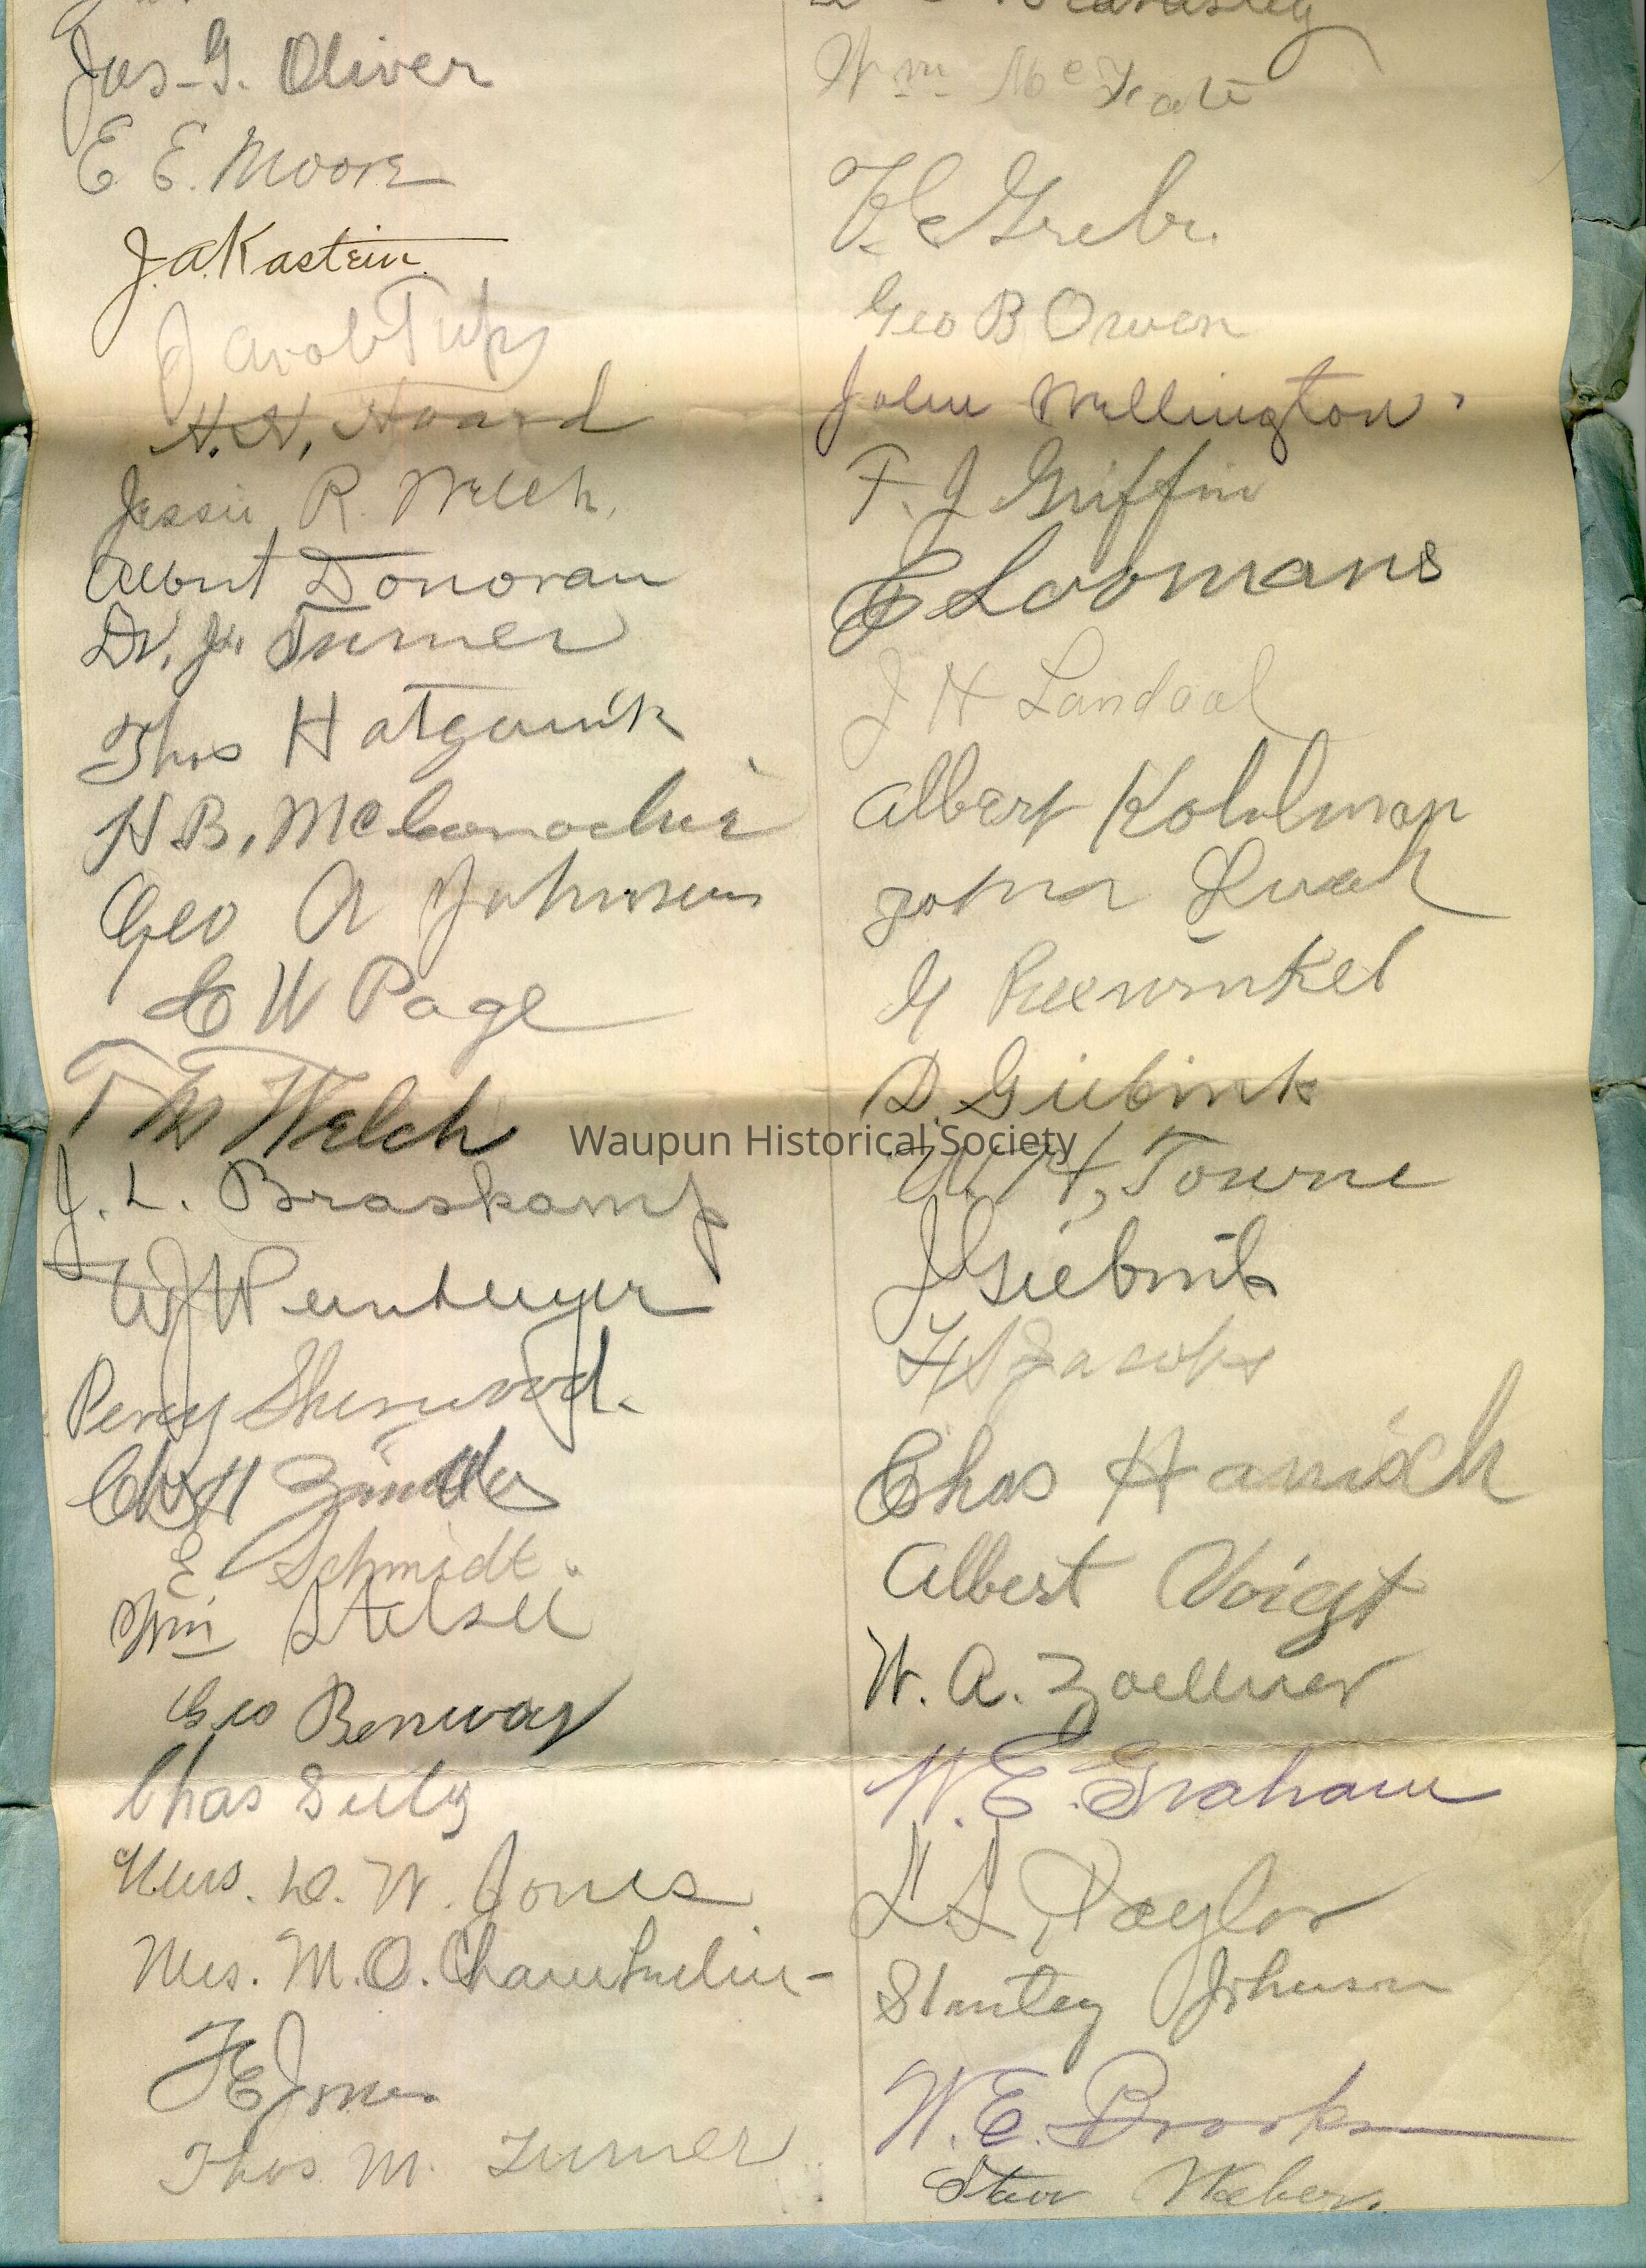 Jas. G. Oliver
E. E. Moore
J. A. Kastein
Jacob Tups
H. H. Hoard
Jessie R. Welch.
Albert Donovan
Dr. Turner
Thos Hatgamik
H B. McConochie
Geo A Johnson
C W Page
T W Welch
J. L. Braskamp
W
Percy Sherwood.
Chas H
E Schmidt.
Wm Stelsel
Geo Benway
Chas Seely
Mrs. D. W. Jones
Mrs. M. O. Chamberlin-
F E Jones
Thos. M. Turner
Wm. Mc
F C Grebe.
Geo B Owen
John Wellington.
F. J Griffin
E Loomans
J H Landaal
Albert Kohlman
John
G Reewinkel
D. Giebink
W. H, Towne
J Giebink
H Jacobs
Chas Hanisch
Albert Voigt
W. A. Zoellner
W. E. Graham
L L Taylor
Stanley Johnson
W. E. Brooks
Weber.
Waupun Historical Society